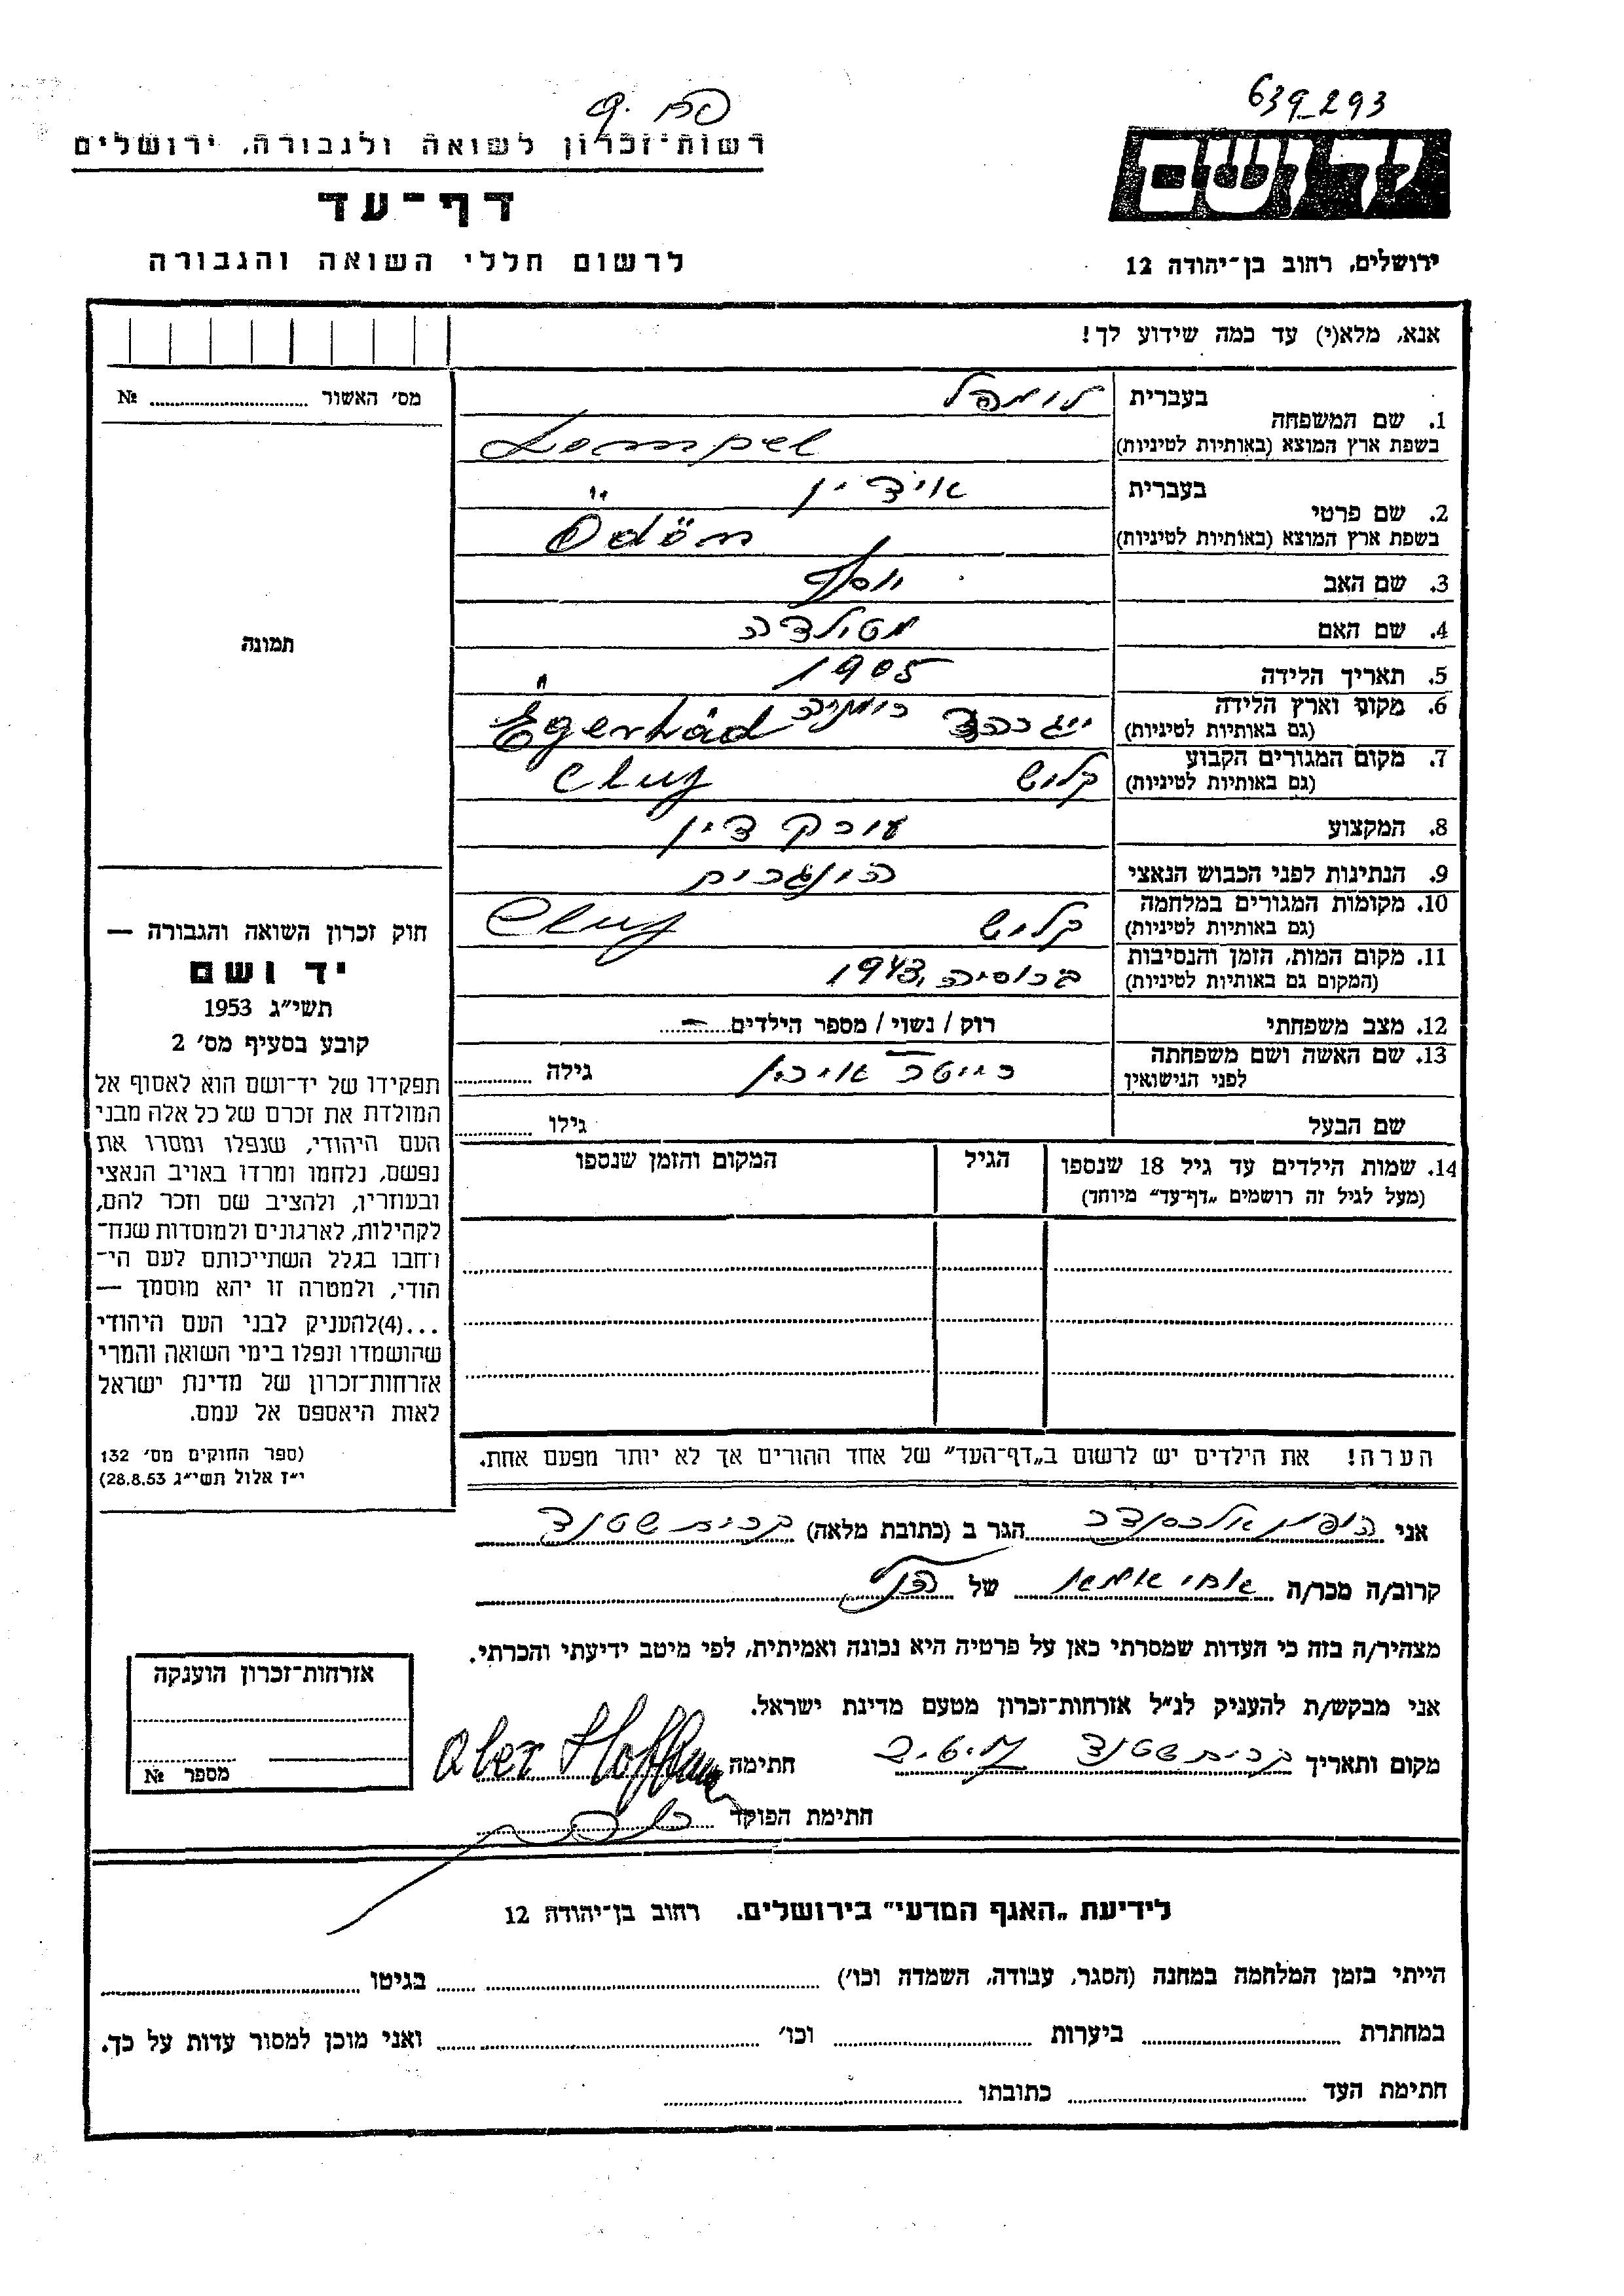 639_293
יד ושם
רשות־זכרון לשואה ולגבורה, ירושלים
דף־עד
לרשום חללי השואה והגבורה
ירושלים, רחוב בן־יהודה 12
אנא, מלא(י) עד כמה שידוע לך!
מס׳ האשור № ........
תמונה
1. שם המשפחה
בעברית לומפל
בשפת ארץ המוצא (באותיות לטיניות) Lompel
2. שם פרטי
בעברית אידין
בשפת ארץ המוצא (באותיות לטיניות) Ödön
3. שם האב יוסף
4. שם האם מטילדה
5. תאריך הלידה 1905
6. מקום וארץ הלידה
(גם באותיות לטיניות) רומניה Égerhád
7. מקום המגורים הקבוע
(גם באותיות לטיניות) קלוש Cluj
8. המקצוע עורך דין
9. הנתינות לפני הכבוש הנאצי הונגרית
10. מקומות המגורים במלחמה
(גם באותיות לטיניות) קלוש Cluj
11. מקום המות, הזמן והנסיבות
(המקום גם באותיות לטיניות) ברוסיה, 1943
12. מצב משפחתי רוק / נשוי / מספר הילדים —
13. שם האשה ושם משפחתה
לפני הנישואין גילה ........
שם הבעל גילו ........
14. שמות הילדים עד גיל 18 שנספו הגיל המקום והזמן שנספו
(מעל לגיל זה רושמים „דף־עד״ מיוחד)
הערה! את הילדים יש לרשום ב„דף־העד״ של אחד ההורים אך לא יותר מפעם אחת.
חוק זכרון השואה והגבורה —
יד ושם
תשי״ג 1953
קובע בסעיף מס׳ 2
תפקידו של יד־ושם הוא לאסוף אל
המולדת את זכרם של כל אלה מבני
העם היהודי, שנפלו ומסרו את
נפשם, נלחמו ומרדו באויב הנאצי
ובעוזריו, ולהציב שם וזכר להם,
לקהילות, לארגונים ולמוסדות שנח־
רבו בגלל השתייכותם לעם הי־
הודי, ולמטרה זו יהא מוסמך —
...(4)להעניק לבני העם היהודי
שהושמדו ונפלו בימי השואה והמרי
אזרחות־זכרון של מדינת ישראל
לאות היאספם אל עמם.
(ספר החוקים מס׳ 132
י״ז אלול תשי״ג 28.8.53)
אני הופמן אלכסנדר הגר ב (כתובת מלאה) קרית שטנד
קרוב/ה מכר/ה של הנ״ל
מצהיר/ה בזה כי העדות שמסרתי כאן על פרטיה היא נכונה ואמיתית, לפי מיטב ידיעתי והכרתי.
אני מבקש/ת להעניק לנ״ל אזרחות־זכרון מטעם מדינת ישראל.
מקום ותאריך קרית שטנד חתימה
חתימת הפוקד
אזרחות־זכרון הוענקה
מספר №
לידיעת „האגף המדעי״ בירושלים, רחוב בן־יהודה 12
הייתי בזמן המלחמה במחנה (הסגר, עבודה, השמדה וכו׳) ........ בגיטו ........
במחתרת ........ ביערות ........ וכו׳ ........ ואני מוכן למסור עדות על כך.
חתימת העד ........ כתובתו ........